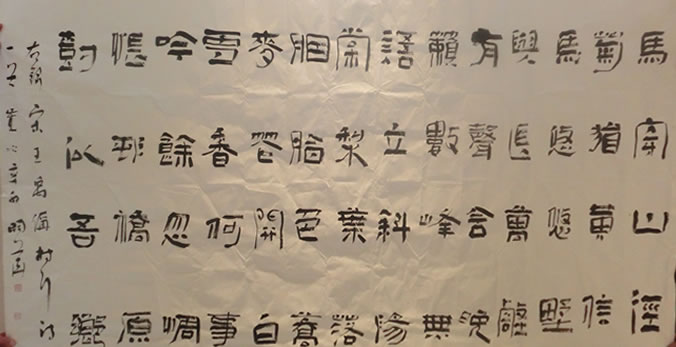 馬穿山徑
菊猶黃信
馬悠悠野
興長萬壑
有聲含晚
籟數峰無
語立斜陽
棠梨葉落
胭脂色蕎
麥花開白
雪香何事
吟餘忽惆
悵邨橋原
尌以吾鄉
右錄宋王禹偁村行詩
一首歲次辛卯